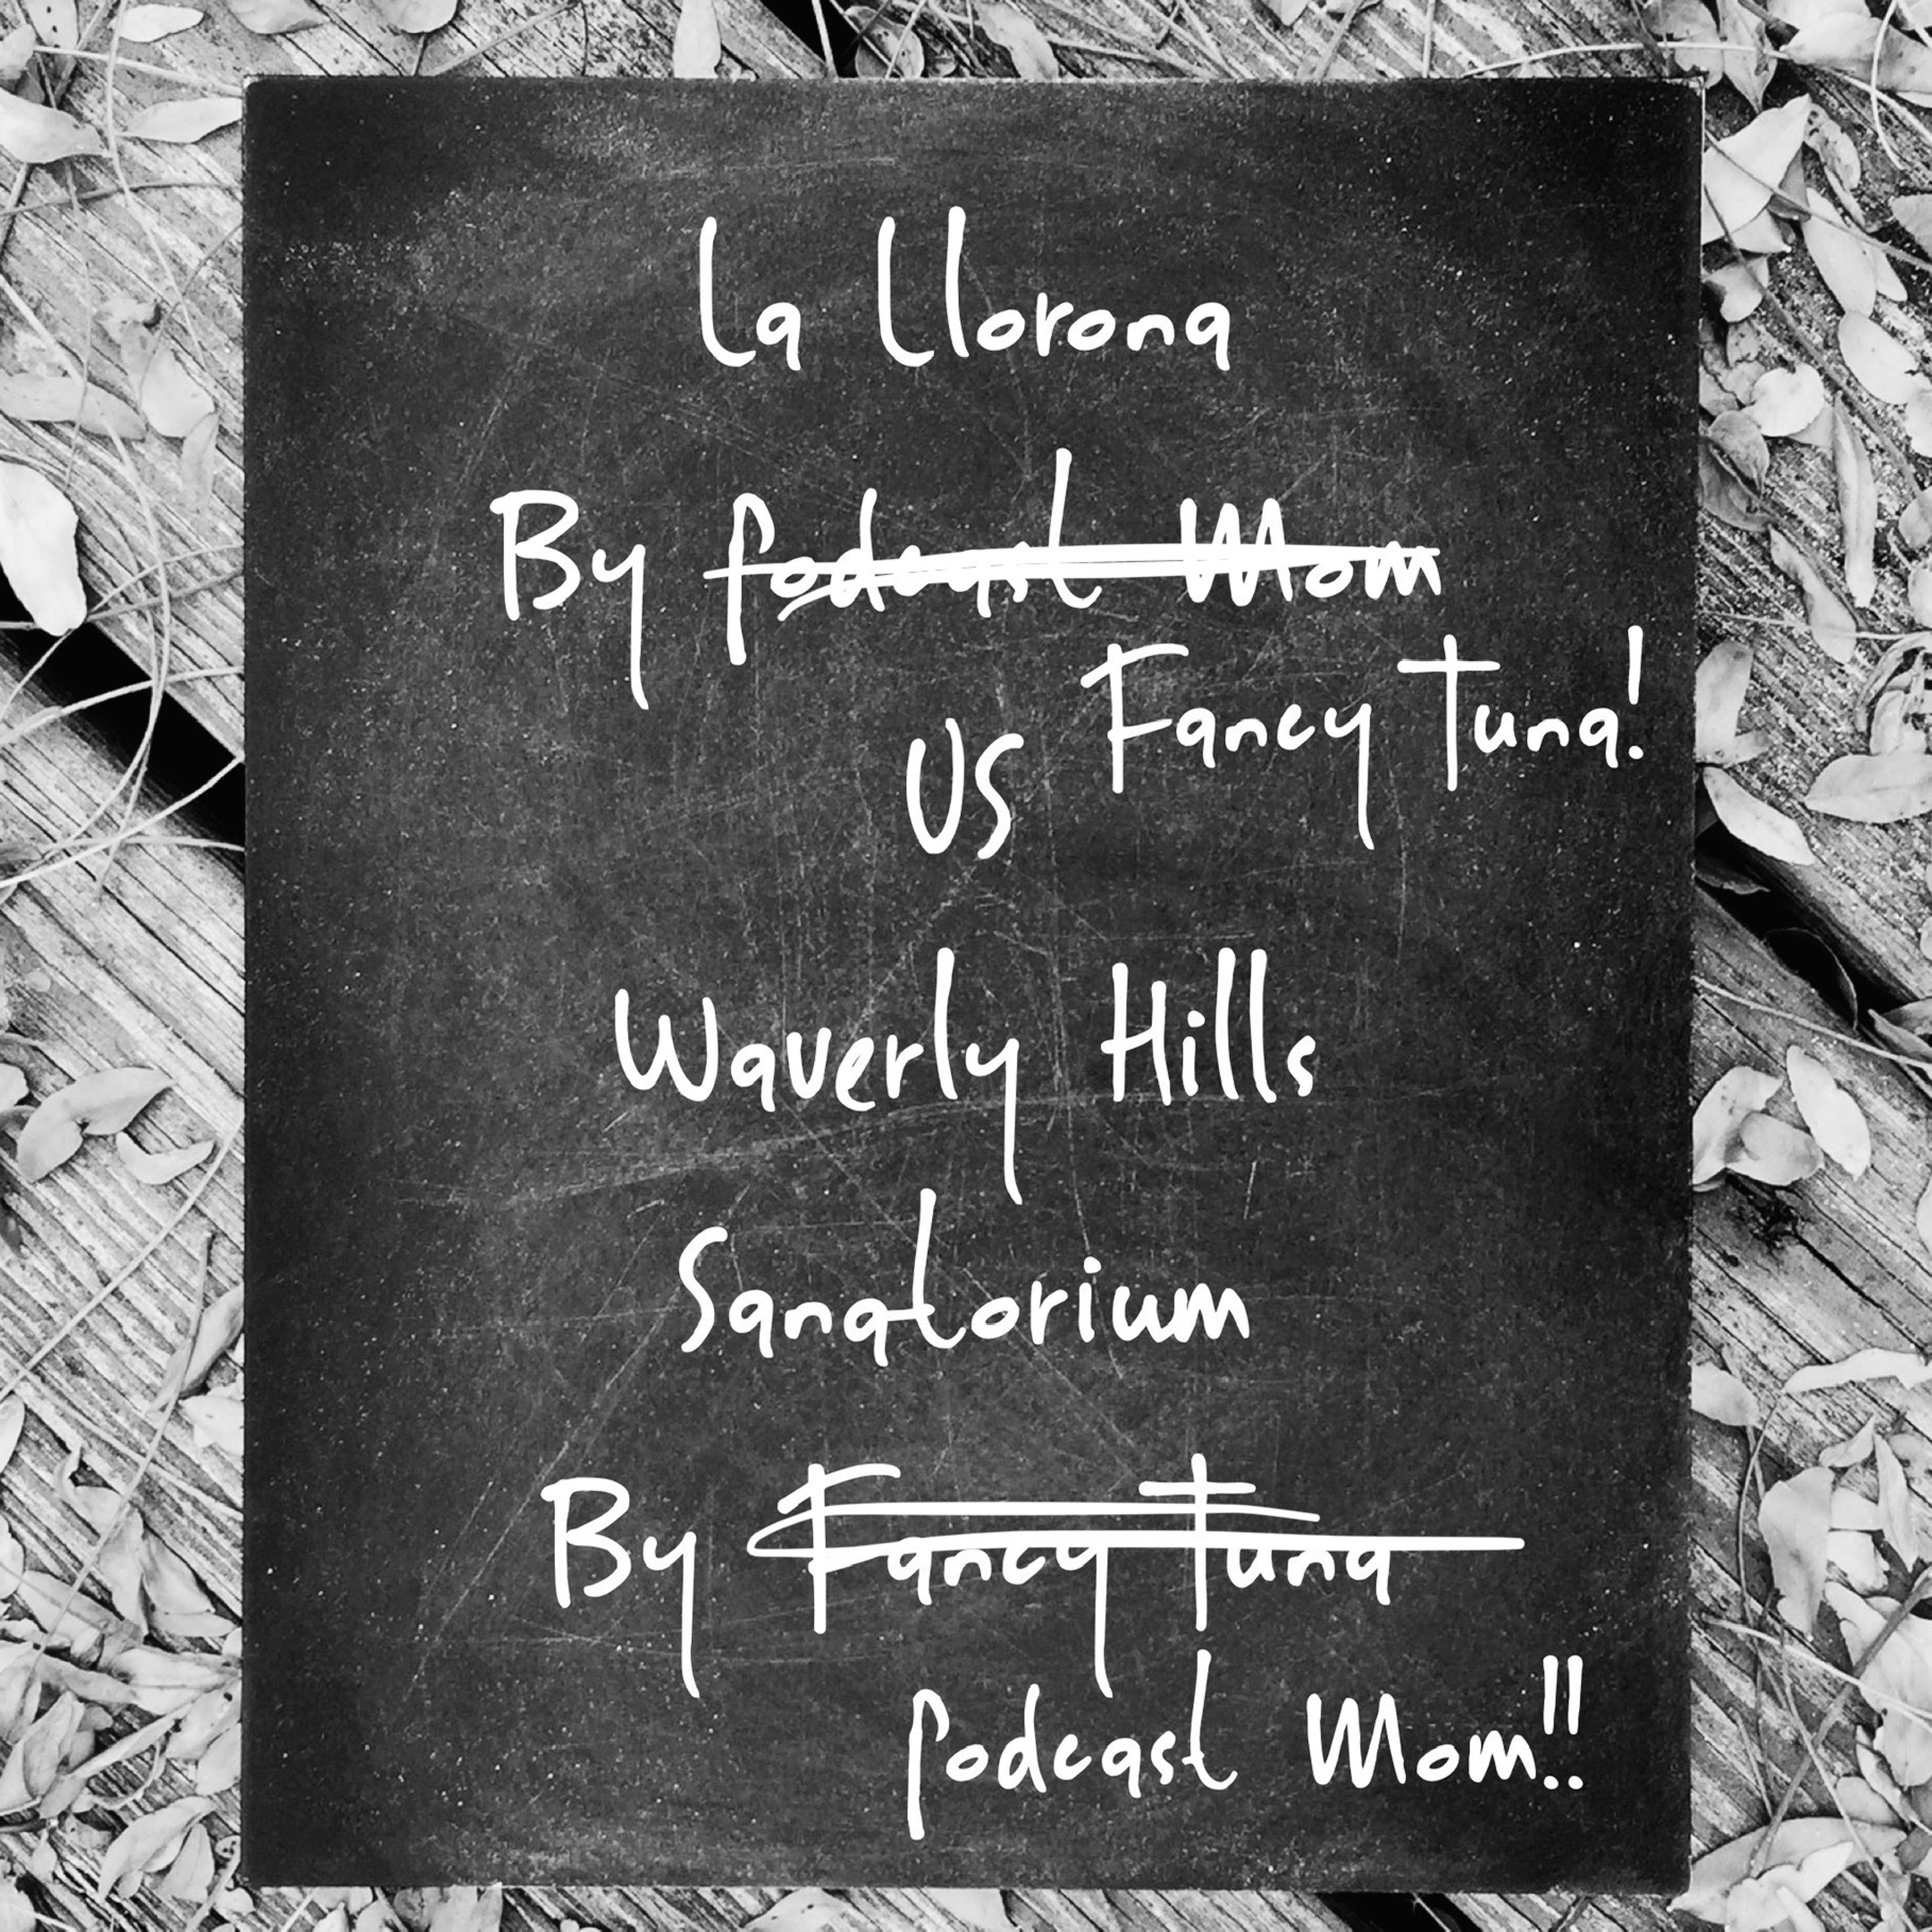 La Llorona
By Podcast Mom
Fancy Tuna!
VS
Waverly Hills
Sanatorium
By Fancy Tuna
Podcast Mom!!